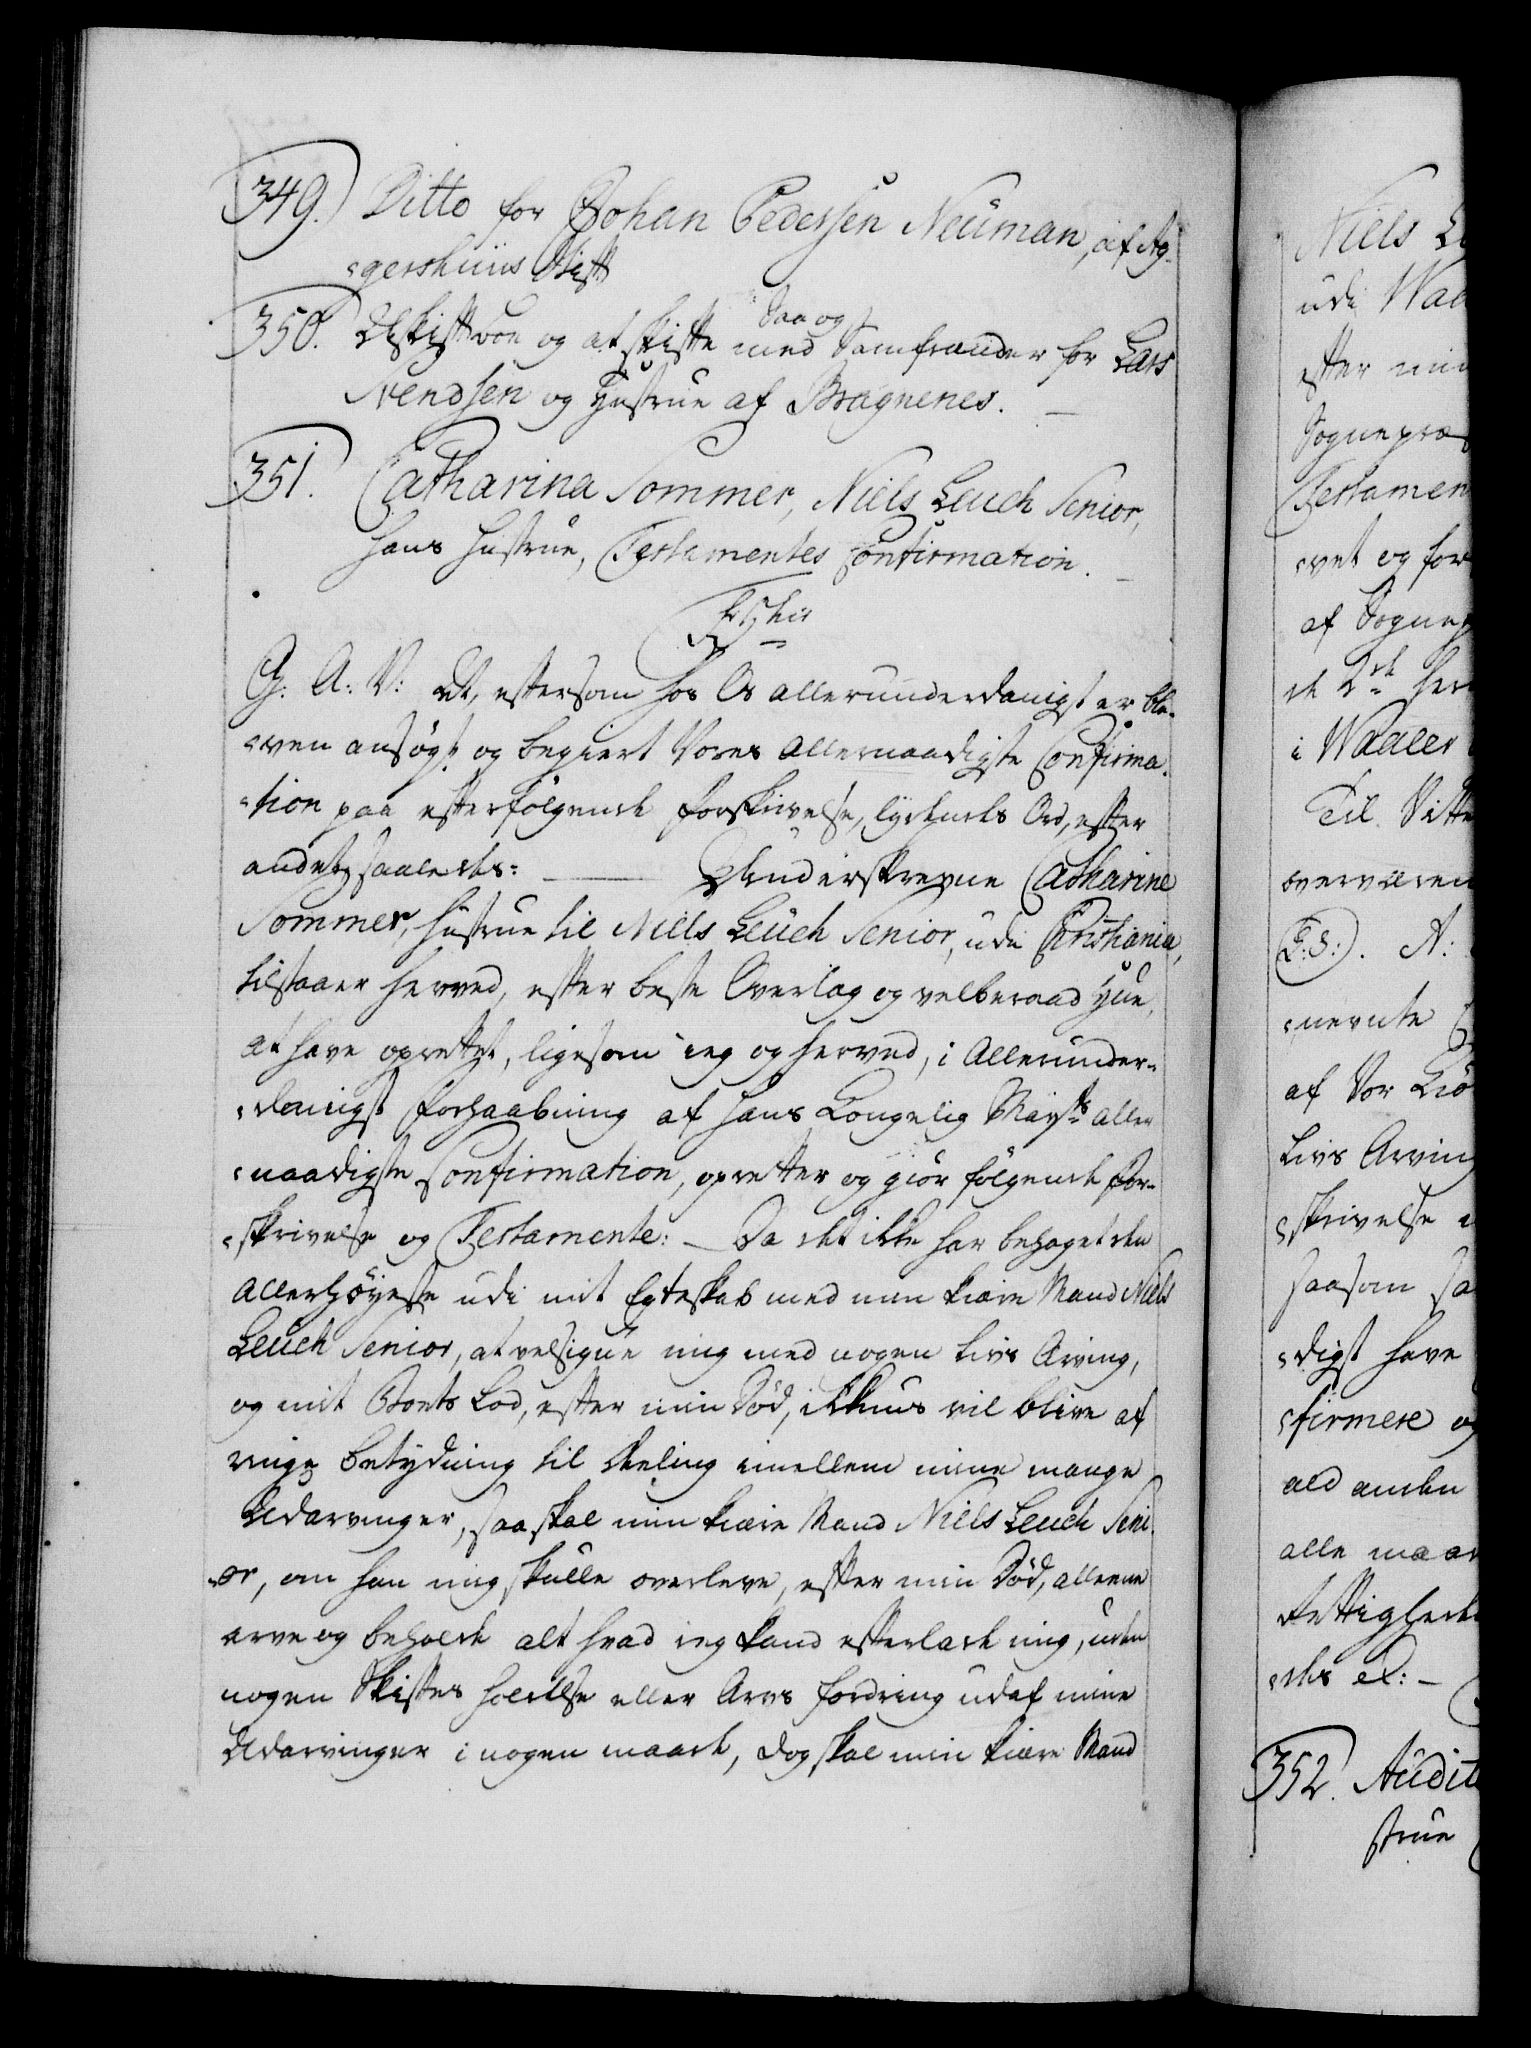 349. Ditto for Johan Pedersen Neuman, af Ag-
gershuus Stift
350. Uskiftet boe og at skifte med Samfrænder for Lars
Saa og
Svendsen og Hustrue af Bragnenes. —
351. Catharina Sommer, Niels Leuch Senior,
hans Hustrue, Testamentes Confirmation. —
G. A: V: At, eftersom hos Os allerunderdanigst er ble-
ven ansøgt og begiert Vores allernaadigste Confirma-
tion paa efterfølgende forskrivelse, lydendes Ord, efter
andet saaledes: — Underskrevne Catharine
Sommer, Hustrue til Niels Leuch Senior, udi Christiania,
tilstaaer herved, efter beste Overlæg og velberaad Hue,
at have oprettet, ligesom ieg og herved, i Allerunder-
danigst forhaabning af Hans Kongelig Mayts aller
naadigste Confirmation, opretter og giør følgende For-
skrivelse og Testamente: — Da det ikke har behaget den
Allerhøyeste udi mit Egteskab med min kiære Mand Niels
Leuch Senior, at velsigne mig med nogen Livs Arving,
og mit Boets Lod, efter min Død, ikkuns vil blive af
ringe betydning til Deeling imellem mine mange
Udarvinger, saa skal min kiære Mand Niels Leuch Seni-
or, om han mig skulle overleve, efter min Død, alleene
arve og beholde alt hvad ieg kand efterlade mig, uden
nogen Skiftes holdelse eller Arvs fordring udaf mine
Udarvinger i nogen maade, dog skal min kiære Mand
Niels
udi
efter min
Sognepræ
Testamen
vet og for
af Sogne
i Waaler
Til
overværen
A:
nevnte
af Vor
Livs Arving
skrivelse
saasom
digst have
firmere og
ald anden
alle maa
Rettighed
352. Audit
strue